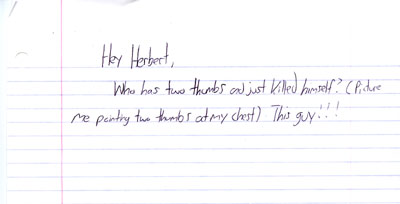 Hey Herbert,
Who has two thumbs and just killed himself? (Picture
me pointing two thumbs at my chest) This guy!!!